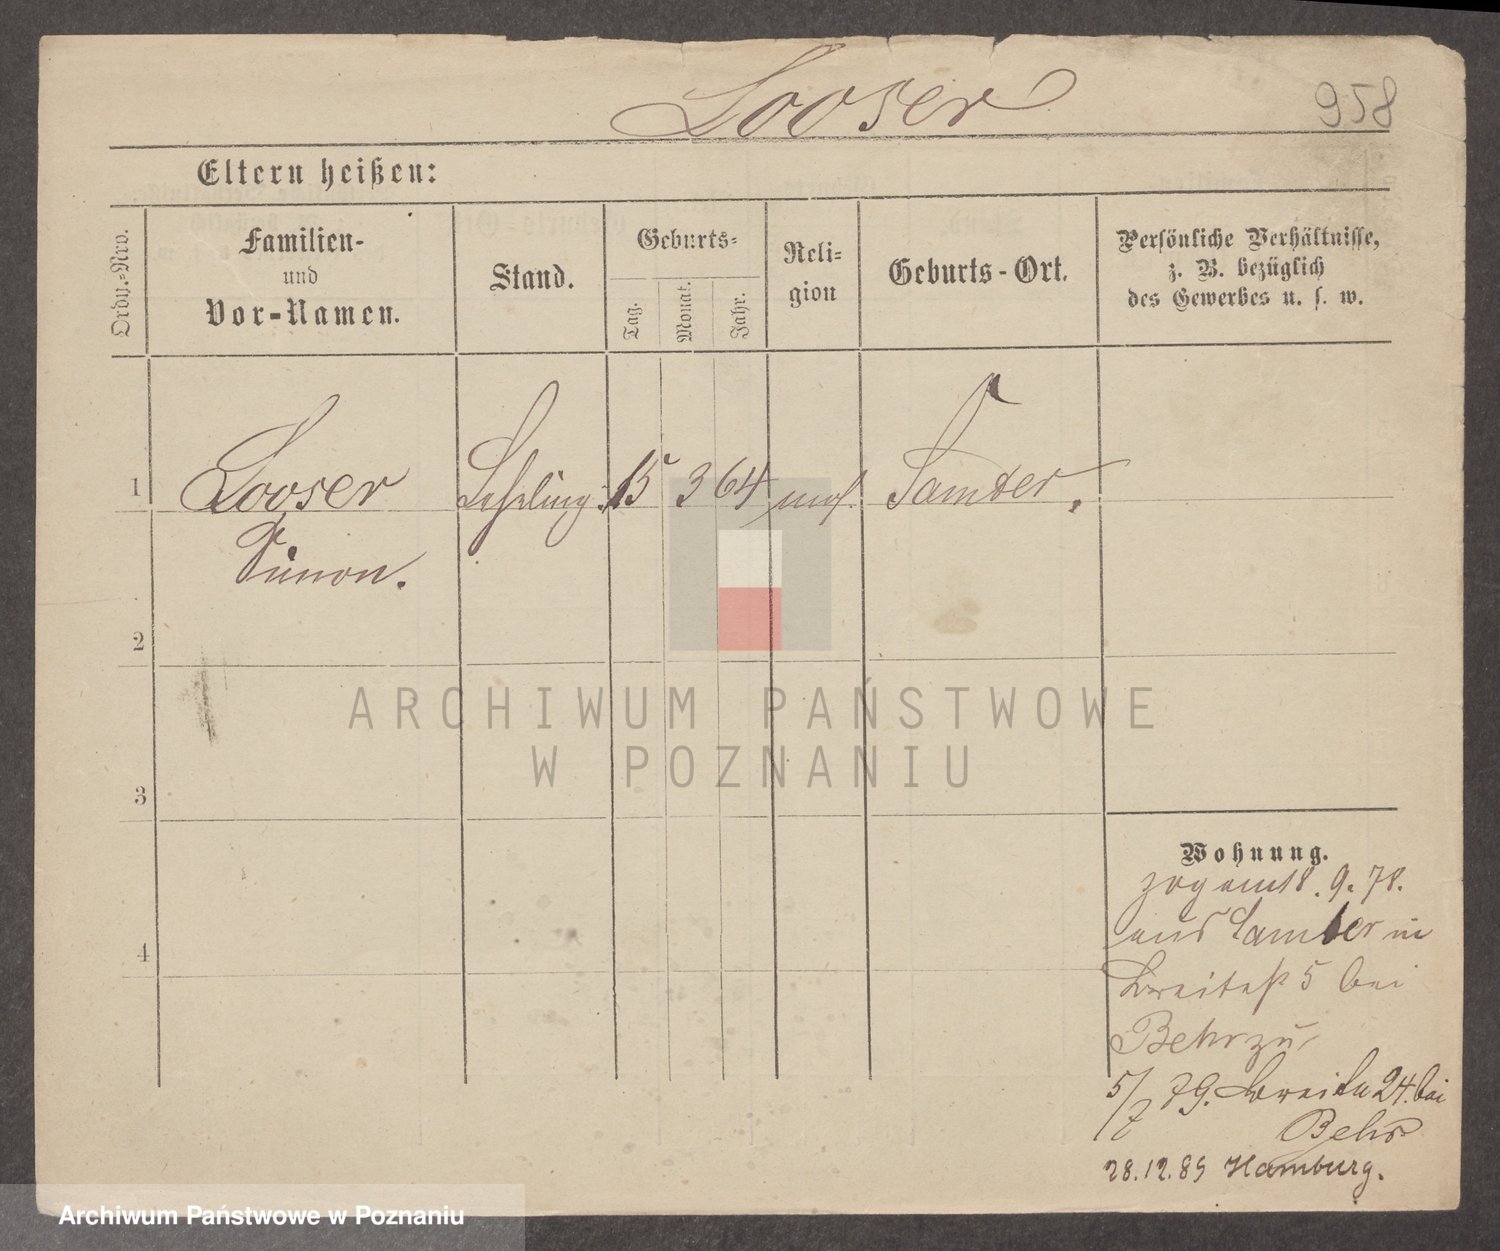 Looser
958
Eltern heißen:
Ordn.-Nro.
Familien-
und
Vor-Namen.
Stand.
Geburts-
Tag.
Monat.
Jahr.
Reli-
gion
Geburts-Ort.
Persönliche Verhältnisse,
z. B. bezüglich
des Gewerbes u. s. w.
1 Looser Lehrling 15 3 64 mos. Samter.
Simon.
2
3
4
Wohnung.
zog am 18. 9. 78.
aus Samter in
Breitestr 5 bei
Behr zu
5/7 79. Breite 24. bei
Behr
28.12.85 Hamburg.
ARCHIWUM PAŃSTWOWE
W POZNANIU
Archiwum Państwowe w Poznaniu